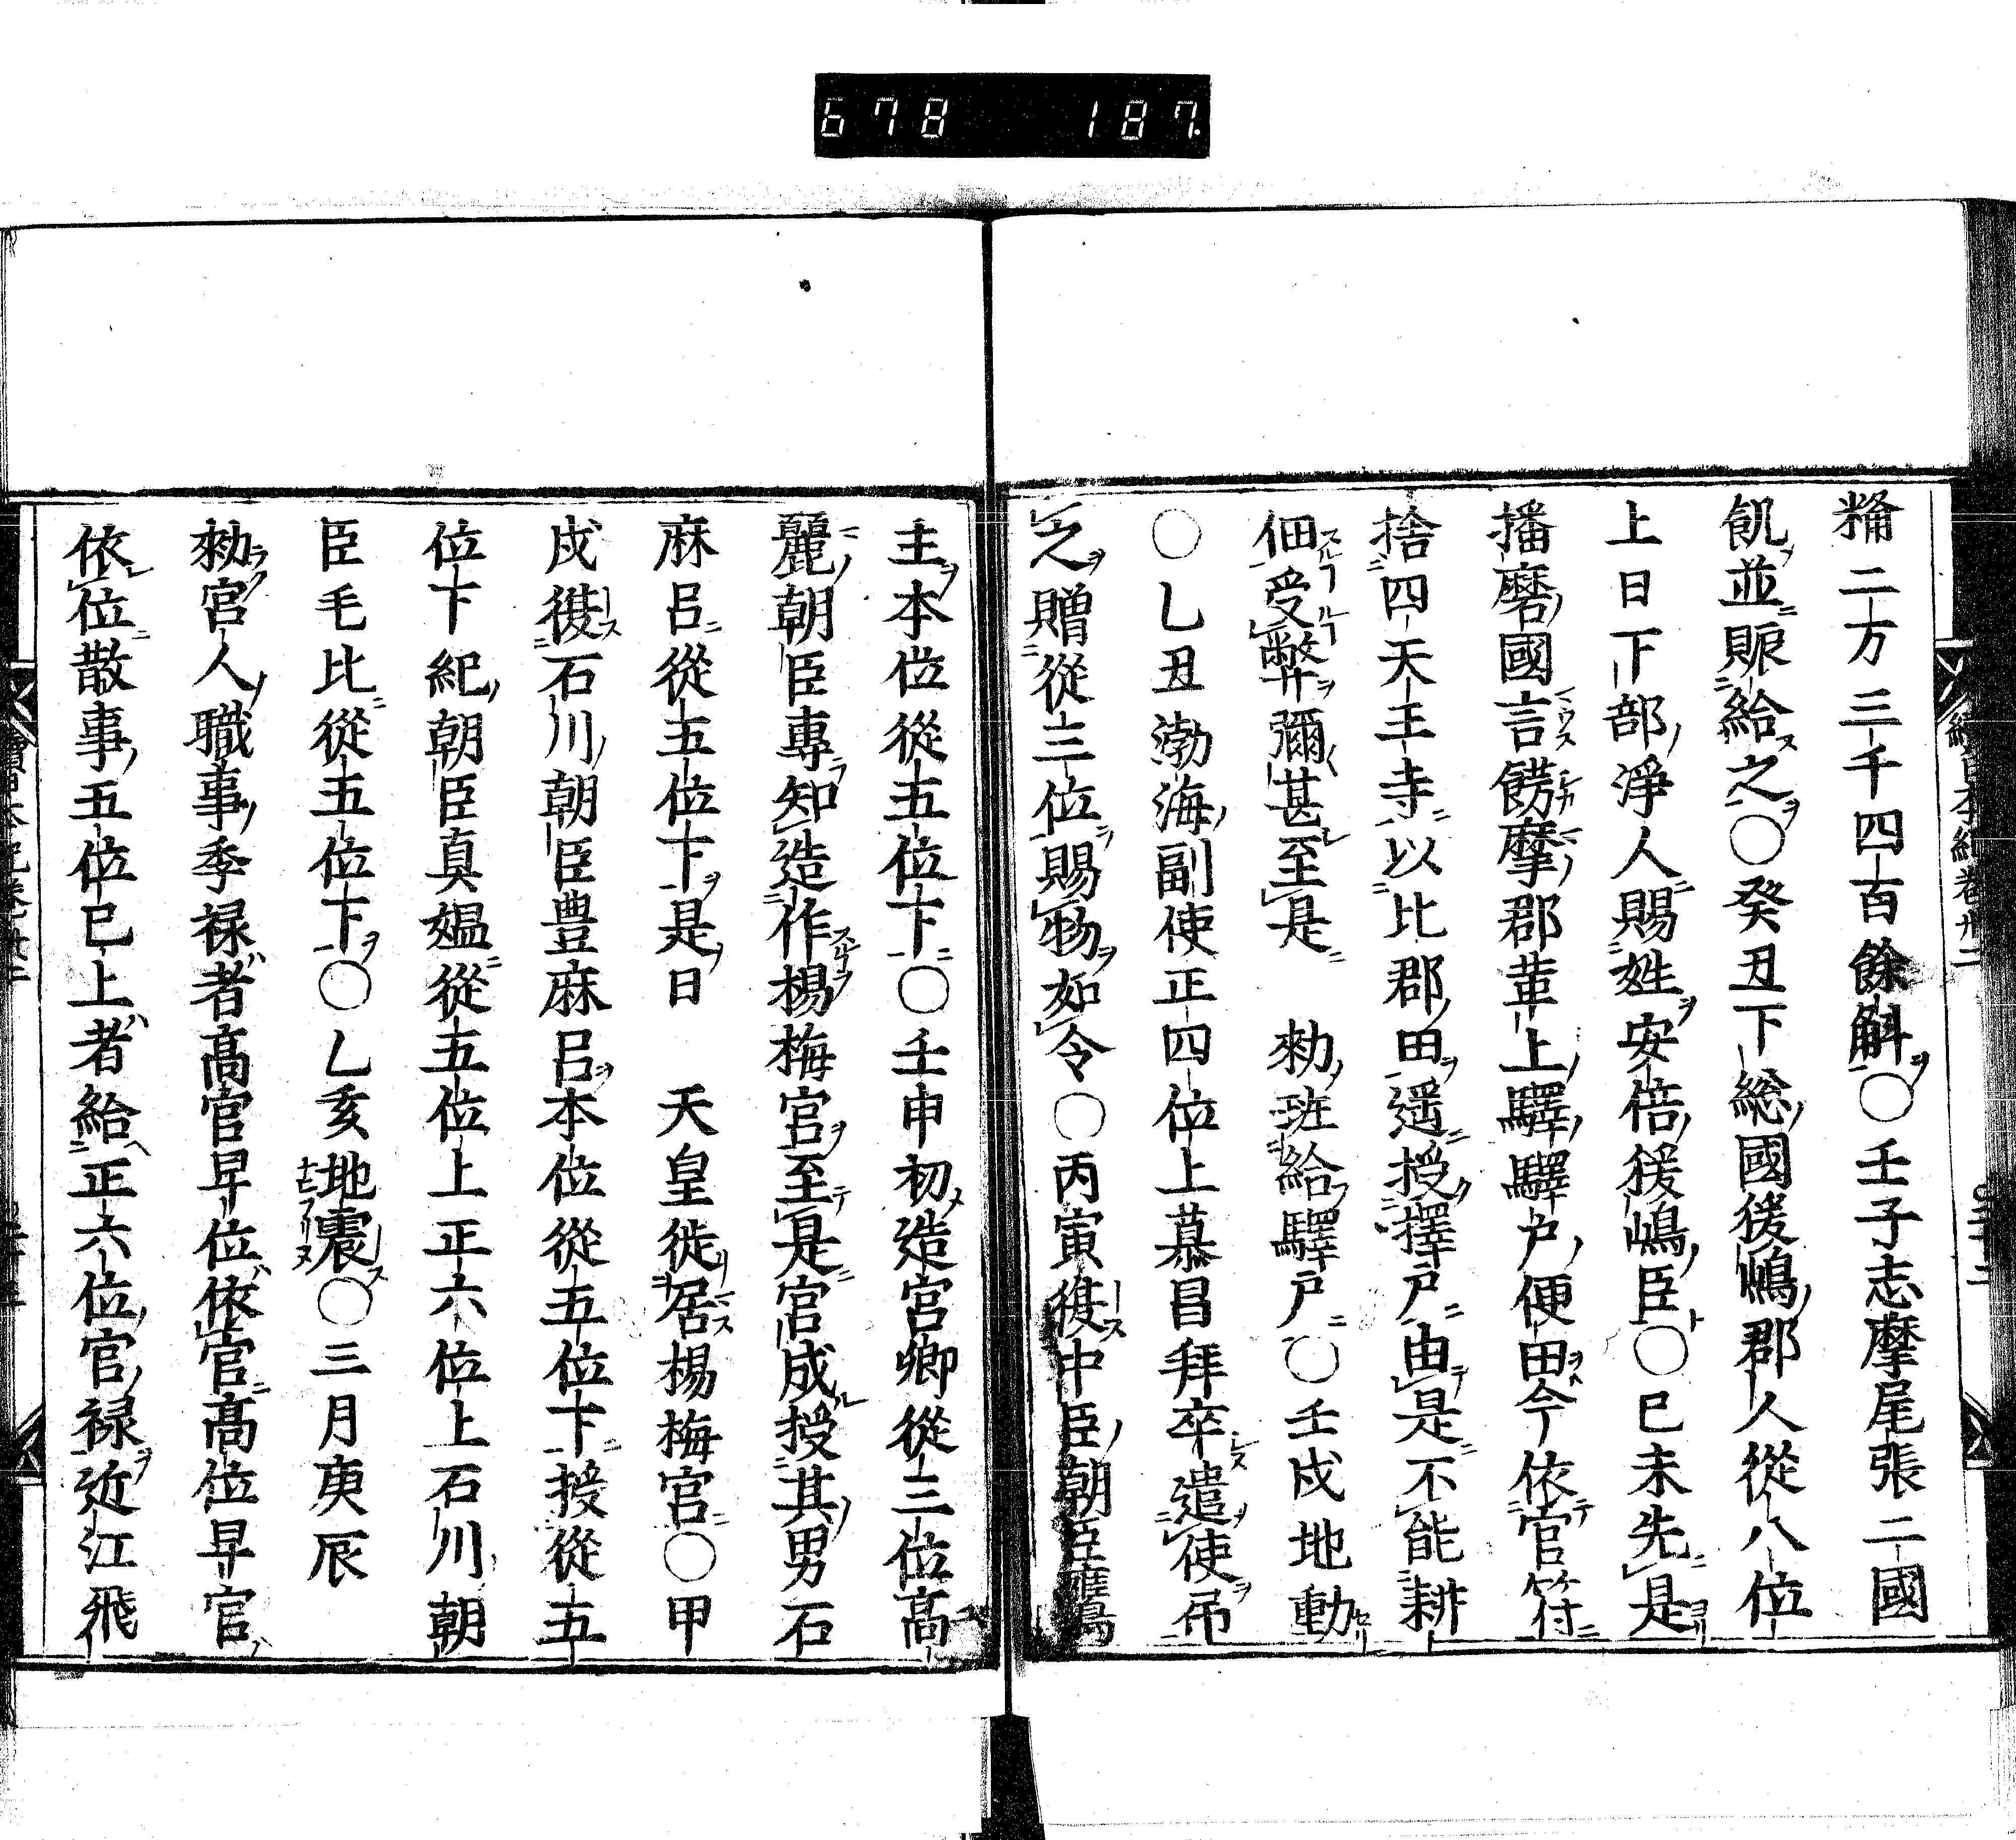 678 187
糒二万三千四百餘斛○壬子志摩尾張二國
飢並賑給之○癸丑下総國猨嶋郡人從八位
上日下部淨人賜姓安倍猨嶋臣○巳未先是
播磨國言餝摩郡草上驛驛戸便田今依官符
捨四天王寺以比郡田遥授擇戸由是不能耕
佃受弊彌甚至是 勑班給驛戸○壬戌地動
○乚丑渤海副使正四位上慕昌拜卒遣使吊
之贈從三位賜物如令○丙寅復中臣朝臣鷹
主本位從五位下○壬申初造宮卿從三位高
麗朝臣專知造作楊梅宮至是宮成授其男石
麻呂從五位下是日 天皇徙居楊梅宮○甲
戌復石川朝臣豊麻呂本位從五位下授從五
位下紀朝臣真媪從五位上正六位上石川朝
臣毛比從五位下○乚亥地震○三月庚辰
勑官人職事季禄者高官卑位依官高位卑官
依位散事五位已上者給正六位官禄近江飛